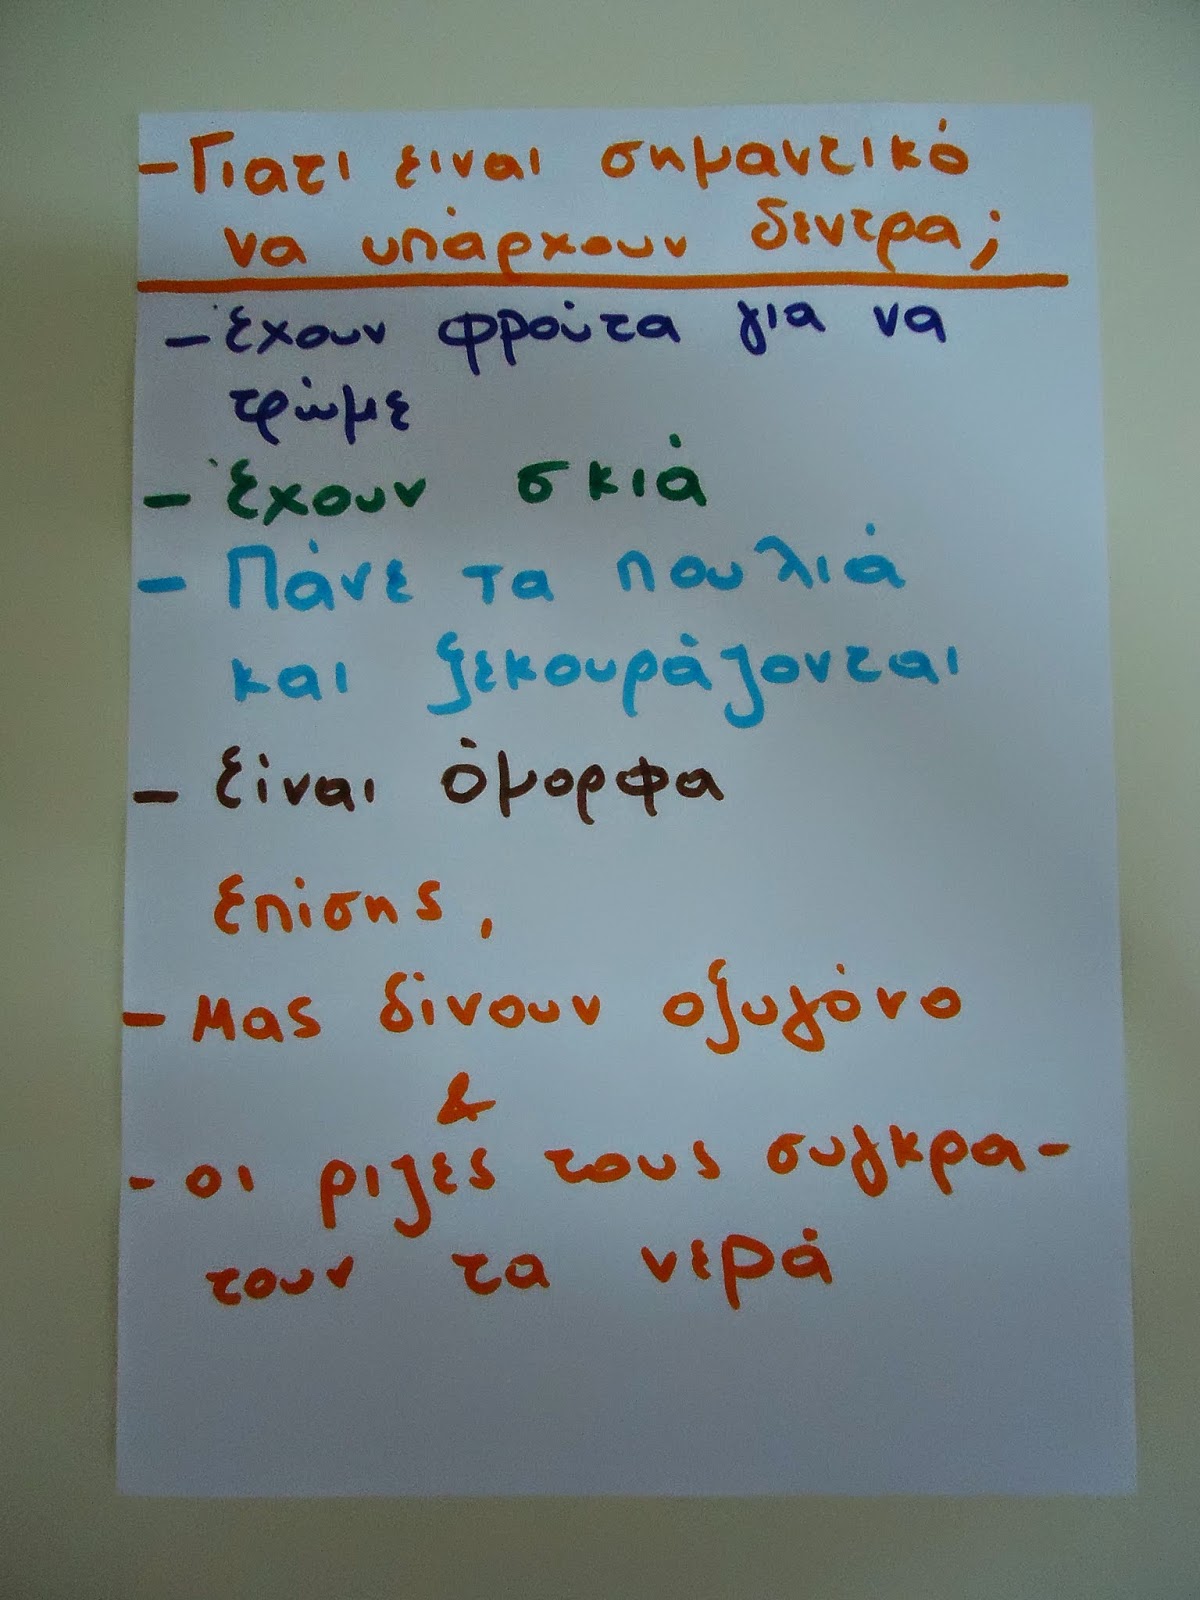 - Γιατι ειναι σημαντικό
να υπάρχουν δεντρα;
- Έχουν φρούτα για να
τρώμε
- Έχουν σκιά
- Πάνε τα πουλιά
και ξεκουράζονται
- Είναι όμορφα
Επίσης,
- Μας δίνουν οξυγόνο
&
- οι ριζες τους συγκρα-
τουν τα νερά